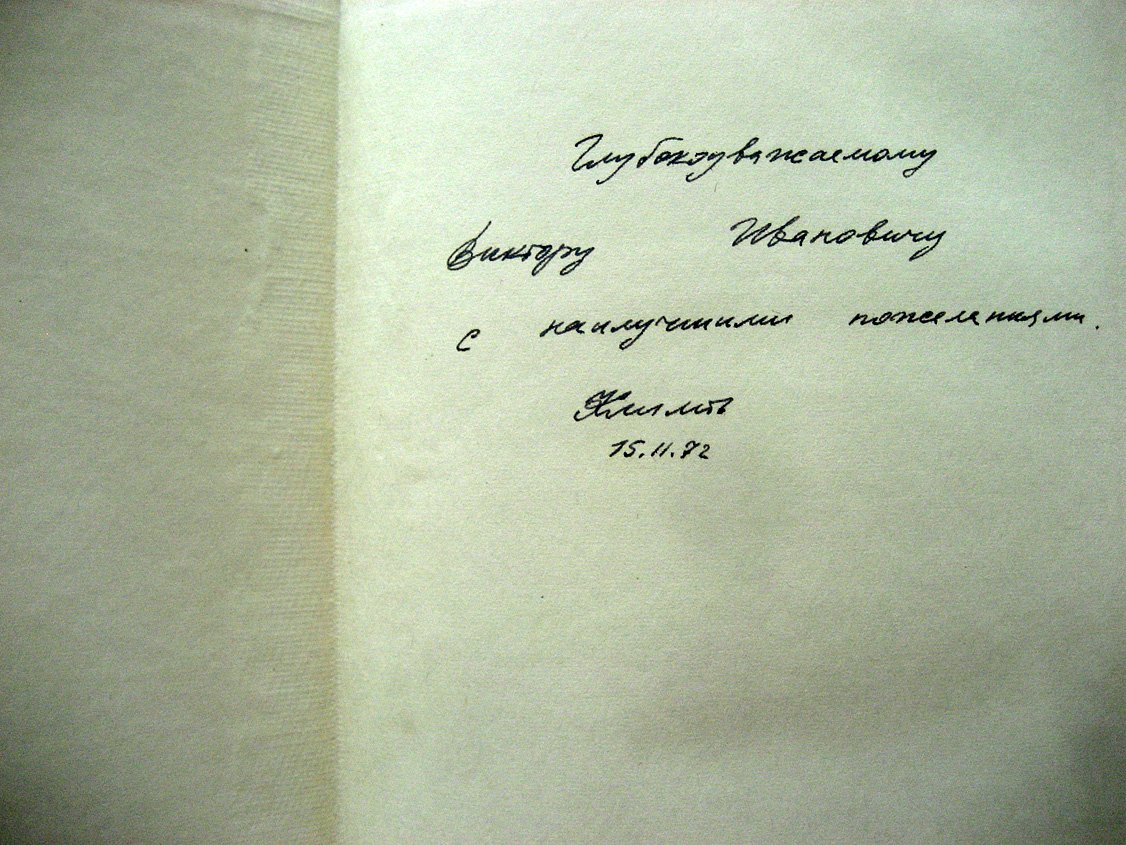 Глубокоуважаемому
Виктору Ивановичу
с наилучшими пожеланиями.
15.11.72